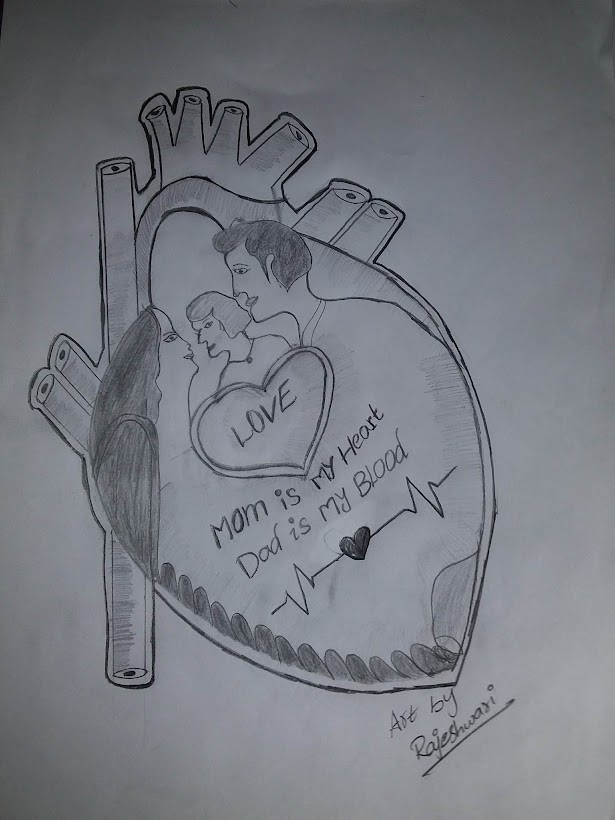 LOVE
Mom is my Heart
Dad is my Blood
Art by
Rajeshwari